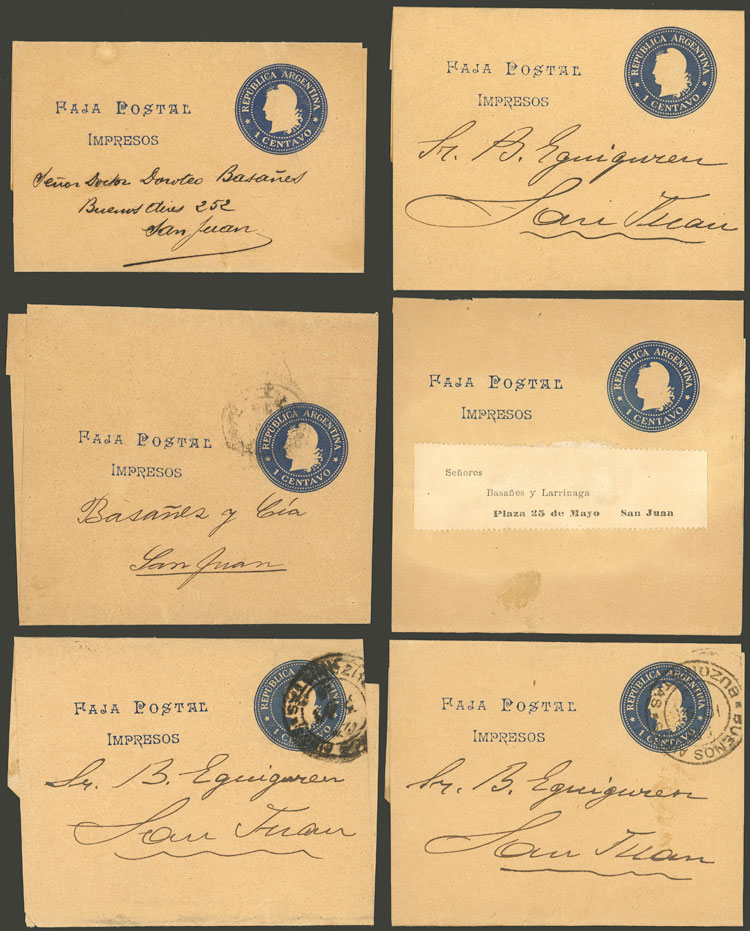 REPÚBLICA ARGENTINA
1 CENTAVO
FAJA POSTAL
IMPRESOS
Señor Doctor Doroteo Basañes
Buenos Aires 252
San Juan
REPÚBLICA ARGENTINA
1 CENTAVO
FAJA POSTAL
IMPRESOS
Sr. B. Eguiguren
San Juan
REPÚBLICA ARGENTINA
1 CENTAVO
FAJA POSTAL
IMPRESOS
Basañes y Cía
San Juan
REPÚBLICA ARGENTINA
1 CENTAVO
FAJA POSTAL
IMPRESOS
Señores
Basañes y Larrinaga
Plaza 25 de Mayo San Juan
REPÚBLICA
1 CENTAVO
FAJA POSTAL
IMPRESOS
Sr. B. Eguiguren
San Juan
REPÚBLICA ARGENTINA
1 CENTAVO
BUENOS
FAJA POSTAL
IMPRESOS
Sr. B. Eguiguren
San Juan